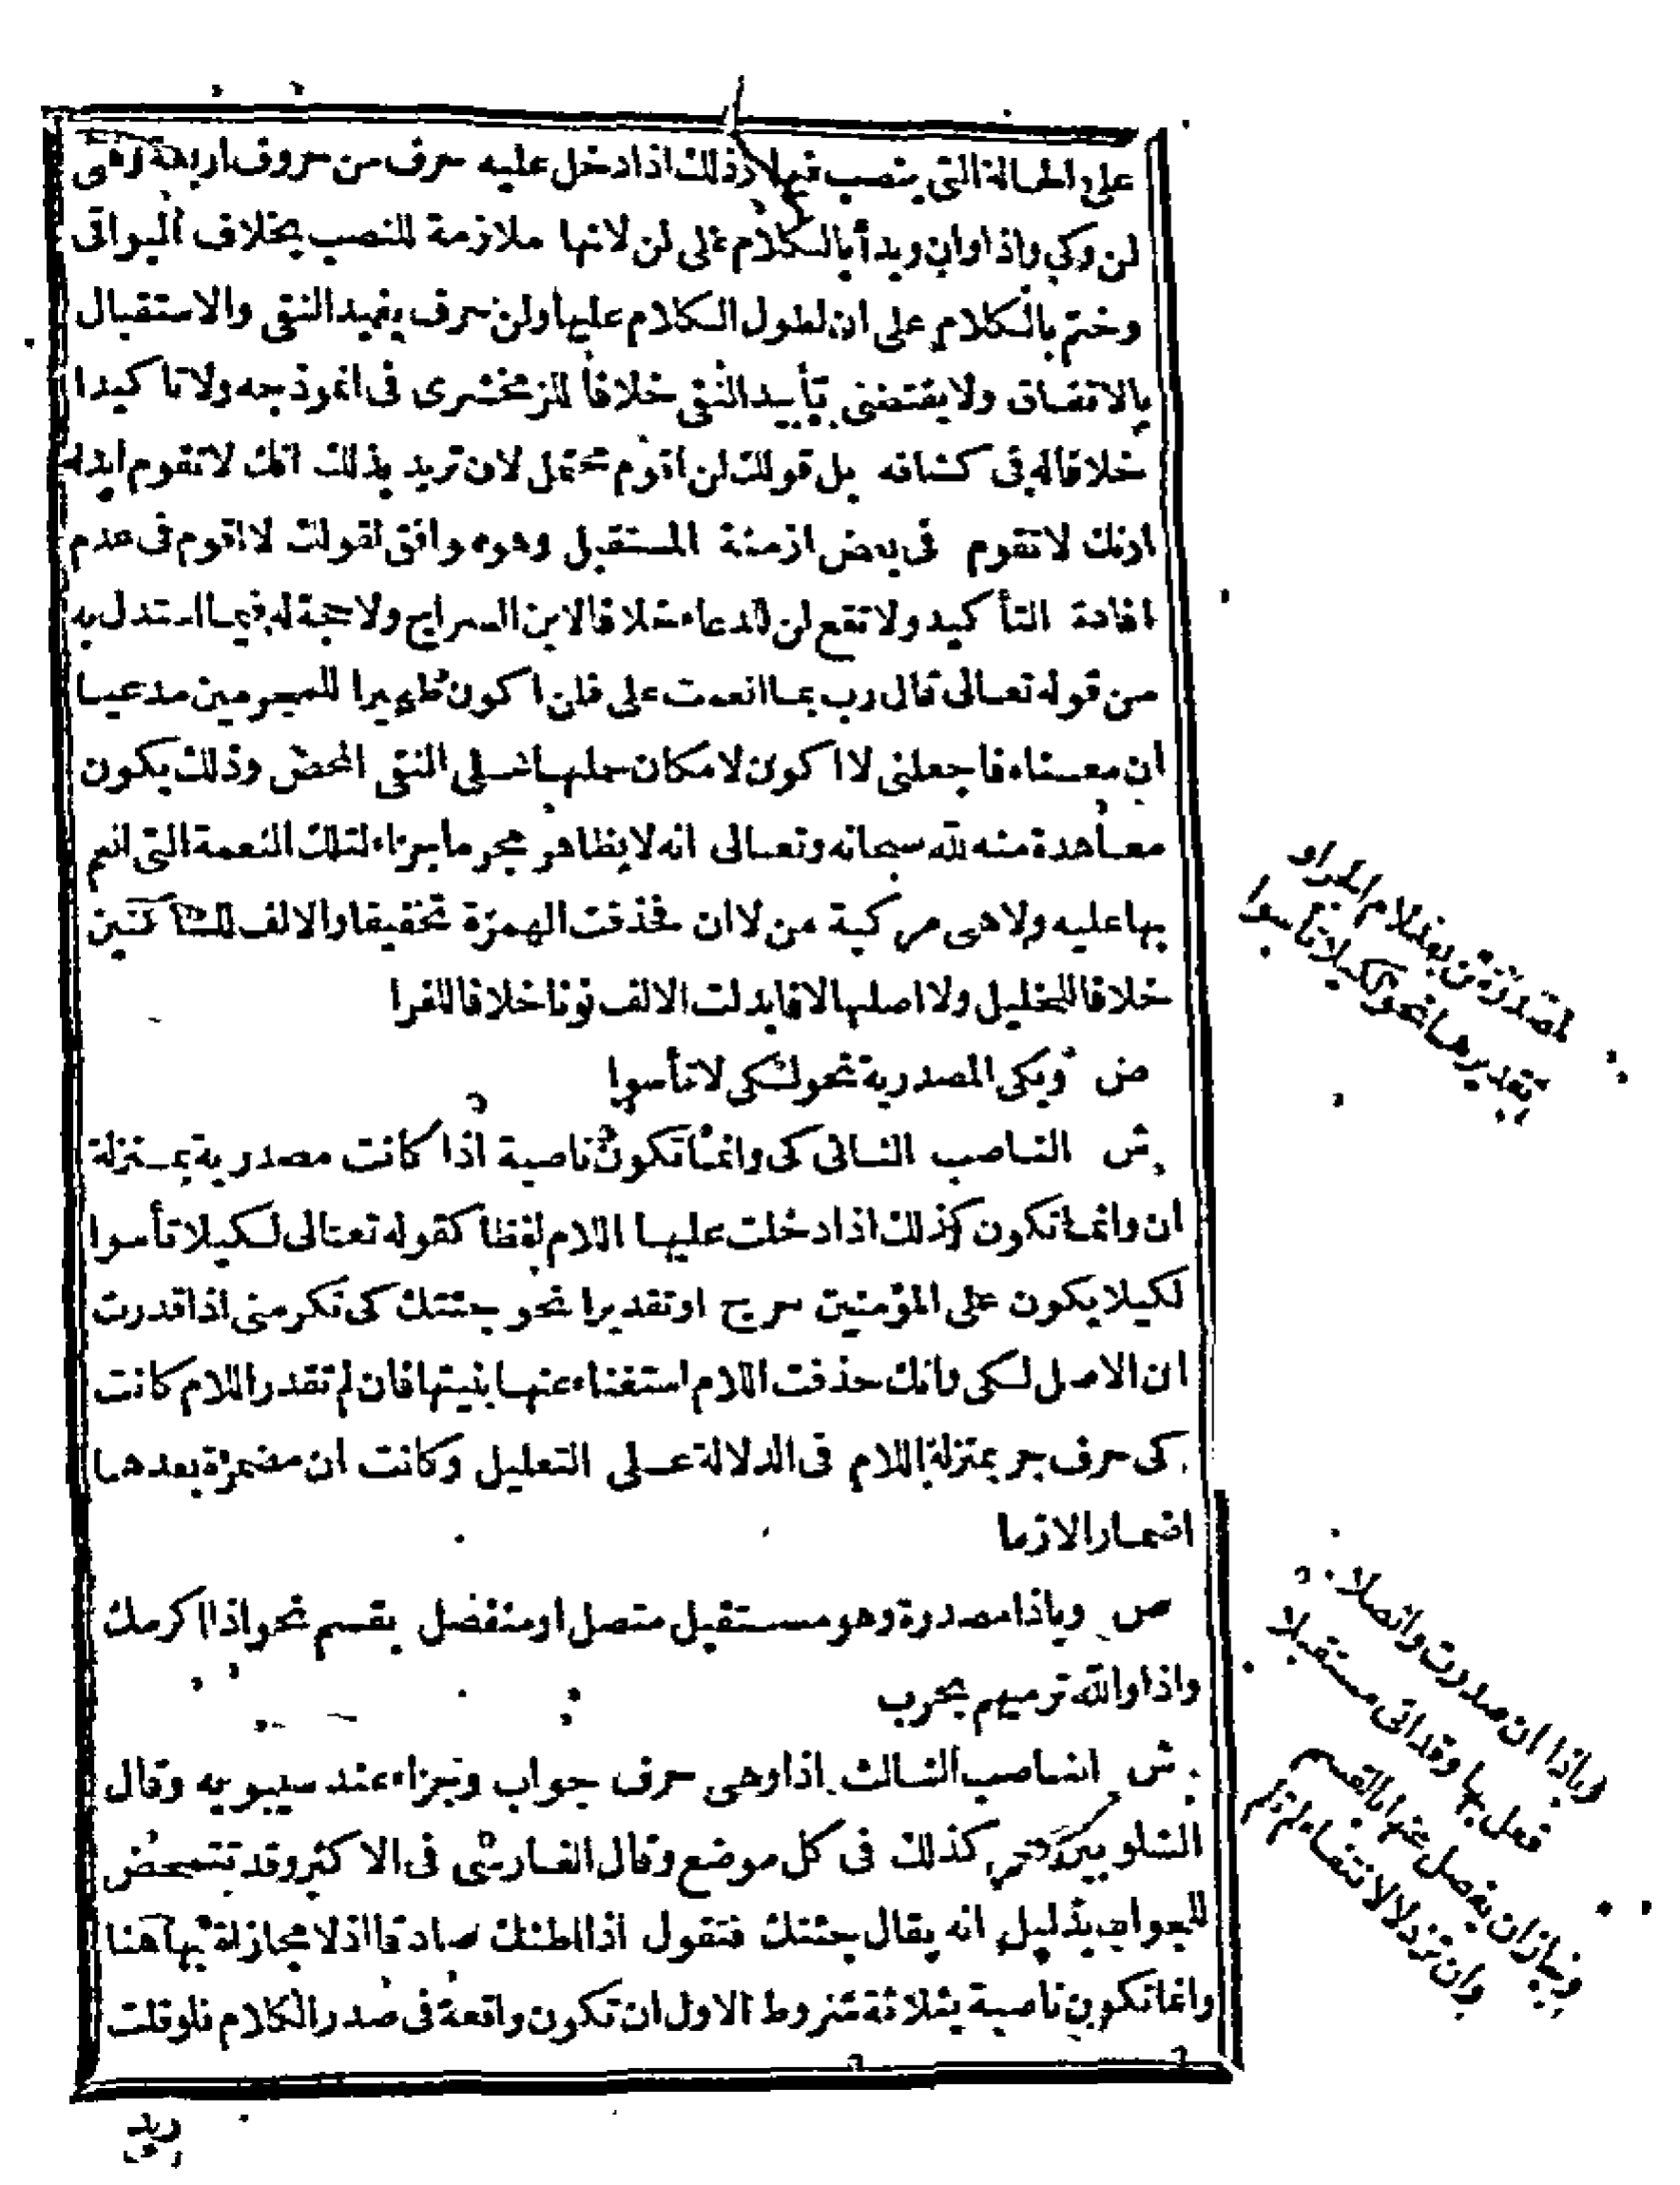 على الحالة التى ينصب فيها وذلك اذا دخل عليه حرف من حروف اربعة وهى
لن وكى واذا وان وبدأ بالكلام على لن لانها ملازمة للنصب بخلاف البواقى
وختم بالكلام على ان لطول الكلام عليها ولن حرف يفيد النفى والاستقبال
بالاتفاق ولا يقتضى تأبيد النفى خلافا للزمخشرى فى انموذجه ولا تاكيدا
خلافا له فى كشافه بل قولك لن اقوم محتمل لان تريد بذلك انك لا تقوم ابدا
اوانك لا تقوم فى بعض ازمنة المستقبل وهو موافق لقولك لا اقوم فى عدم
افادة التأكيد ولا تقع لن للدعاء خلافا لابن السراج ولا حجة له فيما استدل به
من قوله تعالى قال رب بما انعمت على فلن اكون ظهيرا للمجرمين مدعيا
ان معناه فاجعلنى لا اكون لامكان حملها على النفى المحض وذلك يكون
معاهدة منه لله سبحانه وتعالى انه لا يظاهر مجرما جزاء لتلك النعمة التى انعم
بها عليه ولا هى مركبة من لا ان فحذفت الهمزة تخفيفا والالف للساكنين
خلافا للخليل ولا اصلها لا فابدلت الالف نونا خلافا للفرا
ص وبكى المصدرية نحو لكى لا تأسوا
ش الناصب الثانى كى وانما تكون ناصبة اذا كانت مصدرية بمنزلة
ان وانما تكون كذلك اذا دخلت عليها اللام لفظا كقوله تعالى لكيلا تأسوا
لكيلا يكون على المؤمنين حرج او تقديرا نحو جئتك كى تكرمنى اذا قدرت
ان الاصل لكى وانك حذفت اللام استغناء عنها بنيتها فان لم تقدر اللام كانت
كى حرف جر بمنزلة اللام فى الدلالة على التعليل وكانت ان مضمرة بعدها
اضمارا لازما
ص وباذا مصدرة وهو مستقبل متصل او منفصل بقسم نحو اذا اكرمك
واذا والله نرميهم بحرب
ش الناصب الثالث اذا وهى حرف جواب وجزاء عند سيبويه وقال
الشلوبين هى كذلك فى كل موضع وقال الفارسى فى الاكثر وقد تتمحض
للجواب بدليل انه يقال جئتك فتقول اذا اظنك صادقا اذ لا مجازاة بها هنا
وانما تكون ناصبة بثلاثة شروط الاول ان تكون واقعة فى صدر الكلام فلو قلت
زيد
بعد لام الجر او
تقديرها نحو لكيلا تأسوا
وباذا ان صدرت واتصلا
فعل بها وقد اتى مستقبلا
وجاز ان يفصل عنها بالقسم
وان تزد لا لانتفاء لم تلم